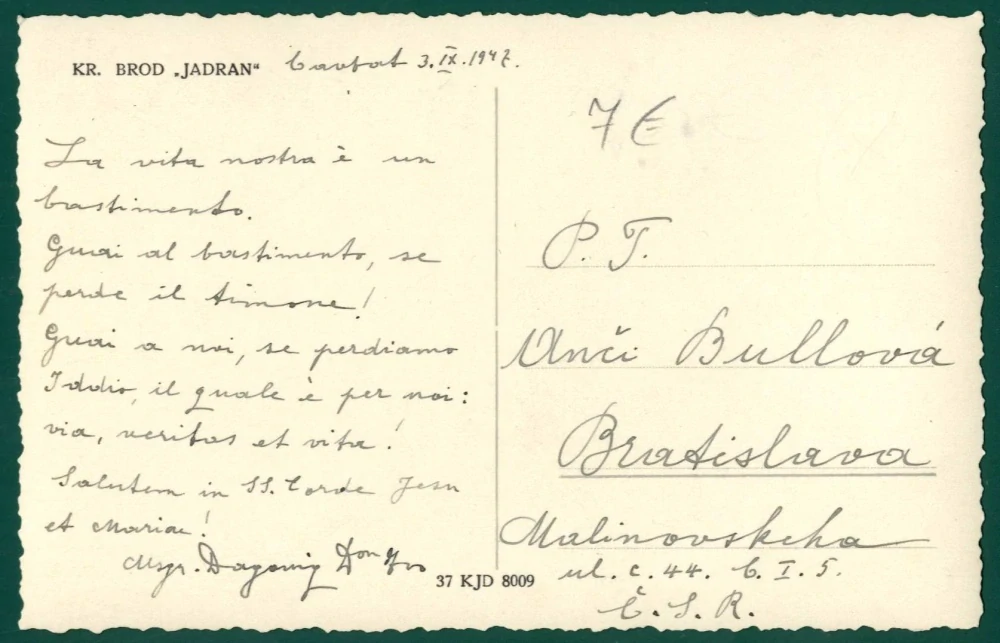 KR. BROD „JADRAN“ Cavtat 3.IX.1947.
La vita nostra è un
bastimento.
Guai al bastimento, se
perde il timone!
Guai a noi, se perdiamo
Iddio, il quale è per noi:
via, veritas et vita!
Salutem in SS. Corde Jesu
et Mariae!
Msgr. Don
37 KJD 8009
7 €
P. T.
Anči Bullová
Bratislava
Malinovskeha
ul. č. 44. č. I. 5.
Č. S. R.